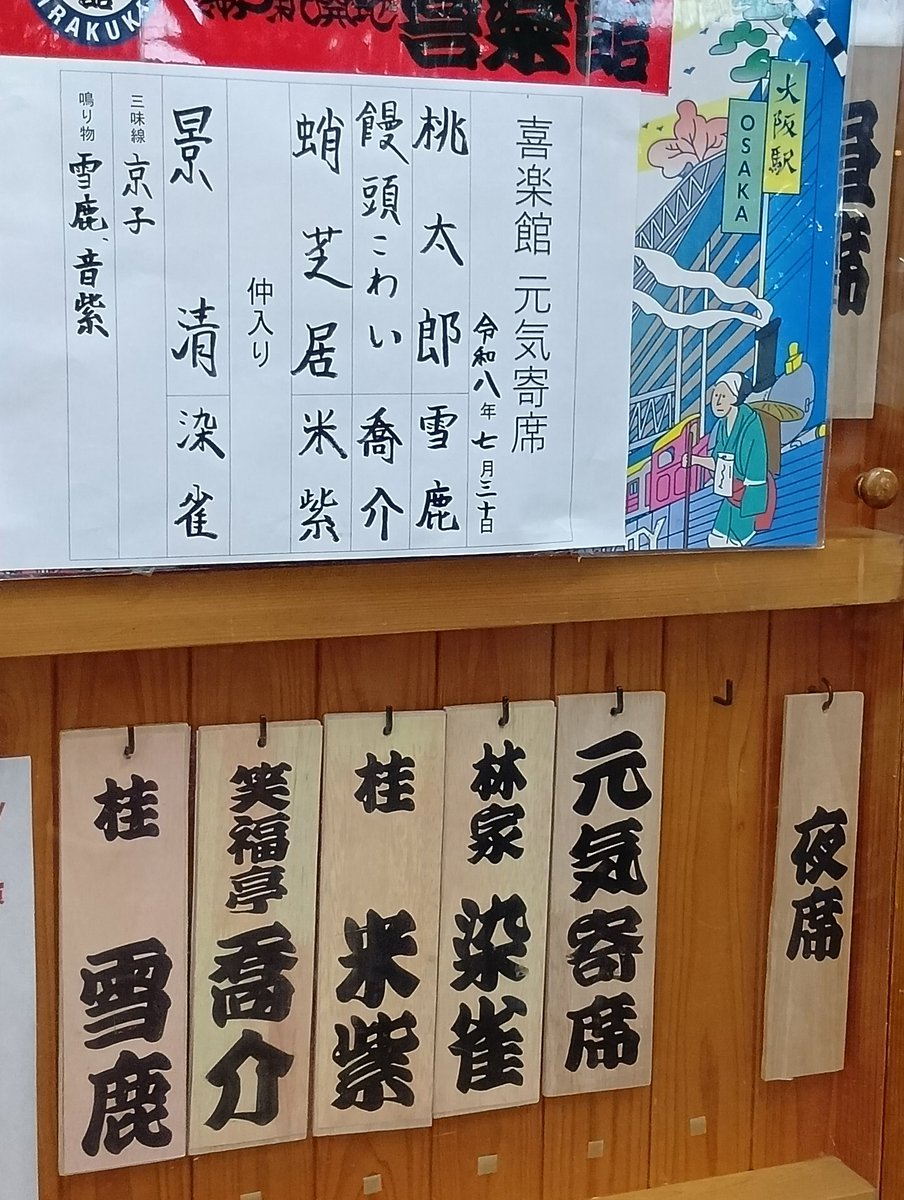 RAKUKA
喜楽館
大阪駅
OSAKA
昼席
喜楽館 元気寄席
令和八年七月三十日
桃太郎 雪鹿
饅頭こわい 喬介
蛸芝居 米紫
仲入り
景清 染雀
三味線 京子
鳴り物 雪鹿、音紫
夜席
元気寄席
林家 染雀
桂 米紫
笑福亭 喬介
桂 雪鹿